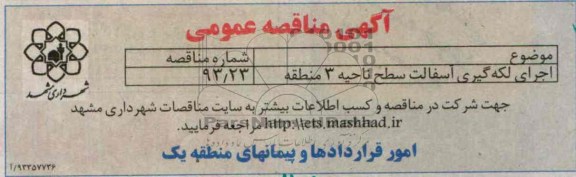 آگهی مناقصه عمومی
موضوع
شماره مناقصه
اجرای لکه گیری آسفالت سطح ناحیه ۳ منطقه
۹۳٫۲۳
شهرداری مشهد
جهت شرکت در مناقصه و کسب اطلاعات بیشتر به سایت مناقصات شهرداری مشهد
http:\\ets.mashhad.ir مراجعه فرمایید.
امور قراردادها و پیمانهای منطقه یک
۱/۹۳۲۵۷۷۳۶